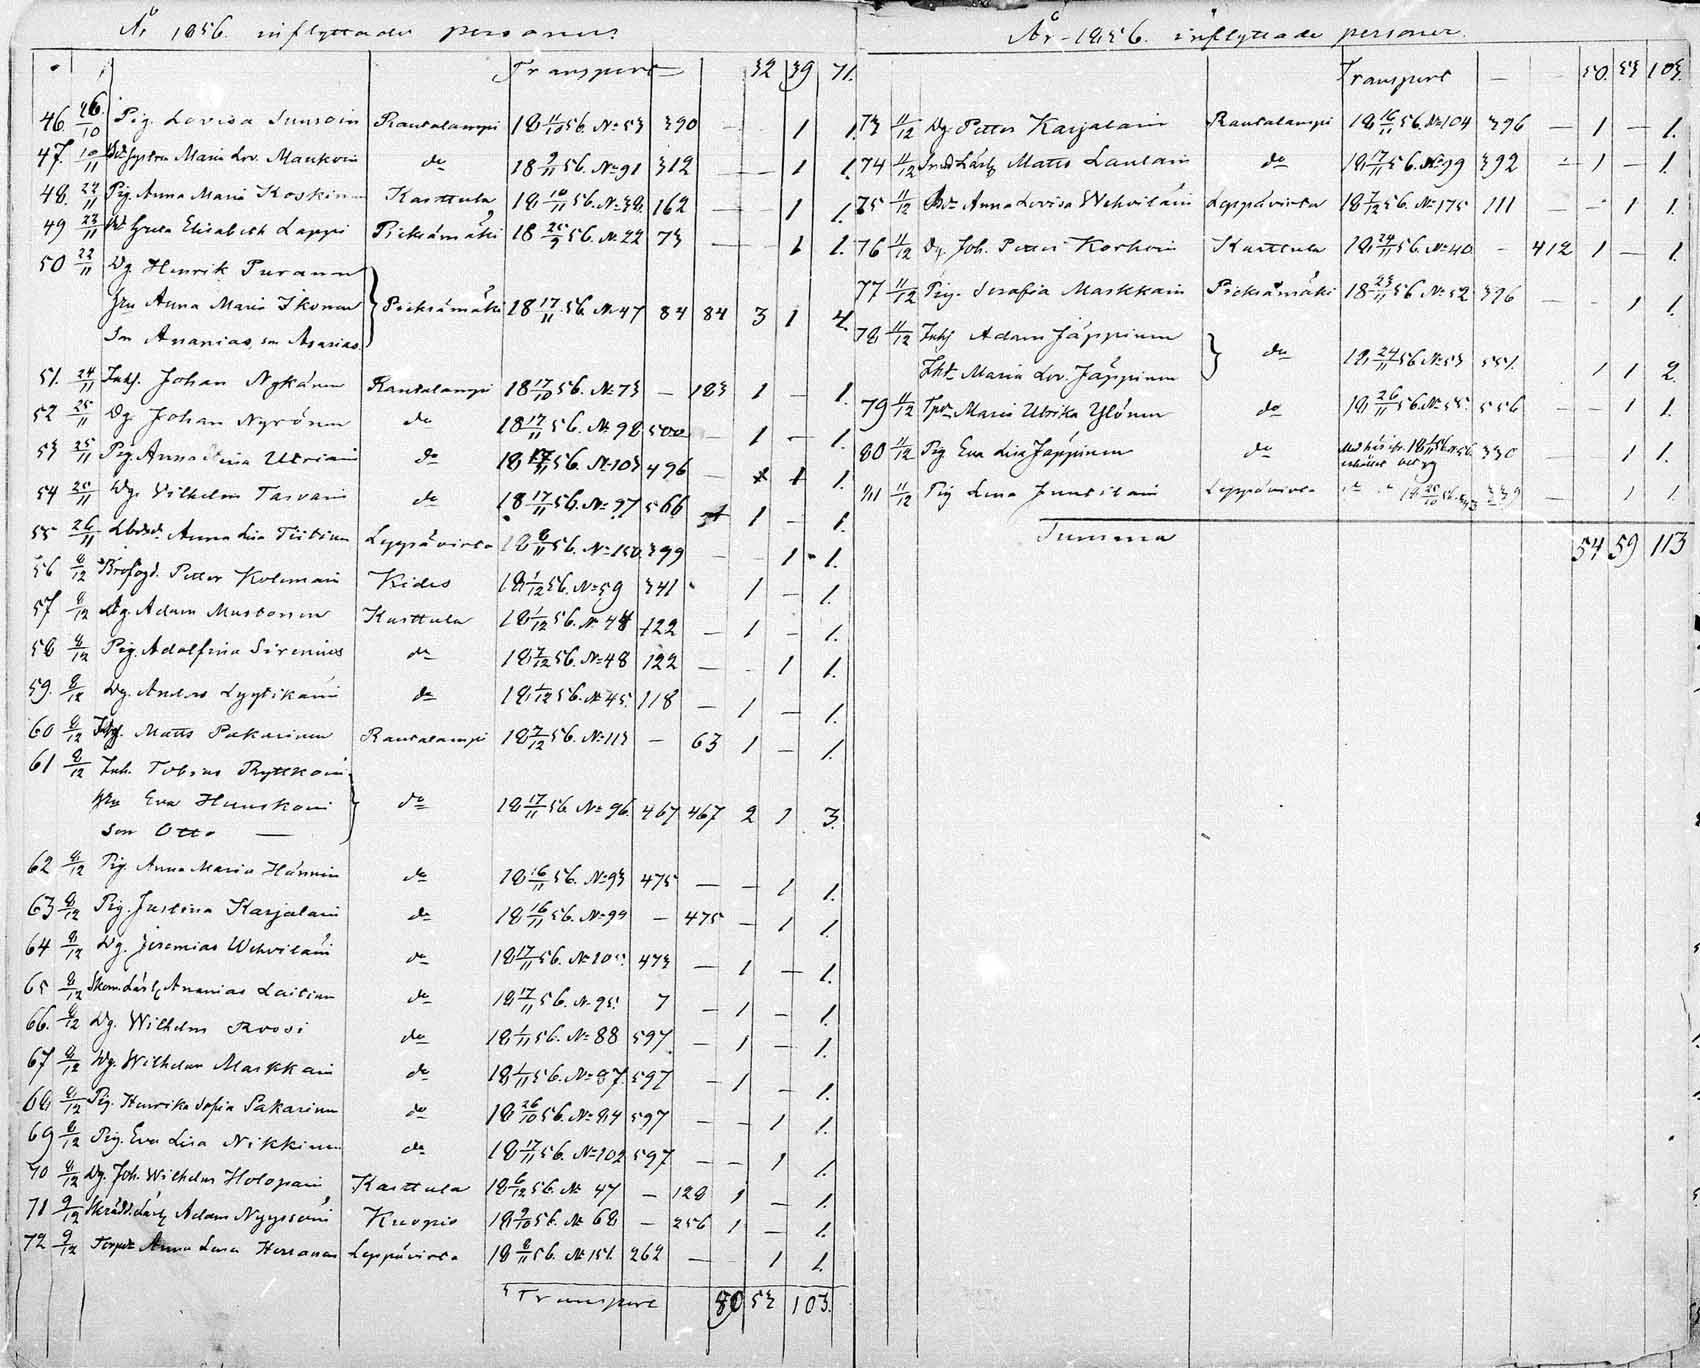 År 1856. inflyttade personer.
Transport 32 39 71.
46. 26/10 Pig. Lovisa Rautalampi 18 11/10 56. No 53 390 — 1 1.
47. 10/11 Maria Lov. Maukoin do 18 9/11 56. No 91 312 — 1 1.
48. 22/11 Pig. Anna Maria Koskinen Karttula 18 10/11 56. No 38. 162 — 1 1.
49 22/11 Greta Elisabeth Lappi Pieksämäki 18 25/9 56. No 22 73 — — 1 1.
50 22/11 Dg Henrik Puranen
Hru Anna Maria Ikonen } Pieksämäki 18 17/11 56. No 47 84 84 3 1 4.
Son Ananias, son Asarias.
51. 24/11 Inhs. Johan Nykänen Rautalampi 18 17/10 56. No 73 — 183 1 — 1.
52 25/11 Dg Johan Nyrönen do 18 17/11 56. No 98 500 — 1 — 1.
53 25/11 Pig Anna Utriain do 18 17/11 56. No 103 496 — 1 1.
54 25/11 Dg. Vilhelm Tarvain do 18 17/11 56. No 97 566 1 — 1.
55 26/11 Anna Lisa Tiitinen Leppävirta 18 8/11 56. No 150. 399 — — 1 1.
56 8/12 Petter Kolemain Kides 18 1/12 56. No 59 341 1 — 1.
57 8/12 Dg. Adam Mustonen Karttula 18 1/12 56. No 48 122 — 1 — 1.
58 8/12 Pig. Adolfina Sirenius do 18 7/12 56. No 48 122 — — 1 1.
59. 8/12 Dg. Anders Lyytikäin do 18 1/12 56. No 45. 118 — 1 — 1.
60 8/12 Inhs. Matts Pakarinen Rautalampi 18 7/12 56. No 113 — 63 1 — 1.
61 8/12 Inh. Tobias Ryttköin
Hru Eva Huuskoin } do 18 17/11 56. No 96. 467 467 2 1 3.
Son Otto —
62 8/12 Pig. Anna Maria Hännin do 18 16/11 56. No 93 475 — — 1 1.
63 8/12 Pig. Justina Karjalain do 18 16/11 56. No 99 — 475 — 1 1.
64 8/12 Dg. Jeremias Wehviläin do 18 17/11 56. No 473 — 1 — 1.
65 8/12 Skom. Lärl. Ananias Laitinen do 18 17/11 56. No 95. 7 — 1 — 1.
66. 8/12 Dg. Wilhelm Roosi do 18 1/11 56. No 88 597 — 1 — 1.
67 8/12 Dg. Wilhelm Markkain do 18 1/11 56. No 87. 597 — 1 — 1.
68 8/12 Pig. Henrika Sofia Pakarinen do 18 26/10 56. No 84 597 — — 1 1.
69 8/12 Pig. Eva Lisa Nikkinen do 18 17/11 56. No 102 597 — — 1 1.
70 8/12 Dg. Joh. Wilhelm Holopain Karttula 18 6/12 56. No 47 — 128 1 — 1.
71 9/12 Skrädd. Lärl Adam Nyyssöin Kuopio 18 9/10 56. No 68 — 256 1 — 1.
72 9/12 Anna Lena Herranen Leppävirta 18 8/11 56. No 151. 262 — 1 1.
Transport 50 53 103.
År 1856. inflyttade personer.
Transport — — 50. 53 103.
73 11/12 Dg Petter Karjalain Rautalampi 18 16/11 56. No 104 396 — 1 — 1.
74 11/12 Matts Laulain do 18 17/11 56. No 99 392 — 1 — 1.
75 11/12 Anna Lovisa Wehviläin Leppävirta 18 7/12 56. No 175 111 — — 1 1.
76 11/12 Dg. Joh. Petter Korhoin Karttula 18 24/11 56. No 40. — 412 1 — 1.
77 11/12 Pig. Serafia Markkain Pieksämäki 18 23/11 56 No 52 396 — — 1 1.
78 11/12 Inhs Adam Jäppinen
Maria Lov. Jäppinen } do 18 24/11 56. No 53 551. 1 1 2.
79 11/12 Maria Ulrika Ylönen do 18 26/11 56 No 55. 556 — 1 1.
80 11/12 Pig Eva Lisa Jäppinen do 330 1 1.
81 11/12 Pig Lena Juutilain Leppävirta 339 — 1 1
Summa 54 59 113